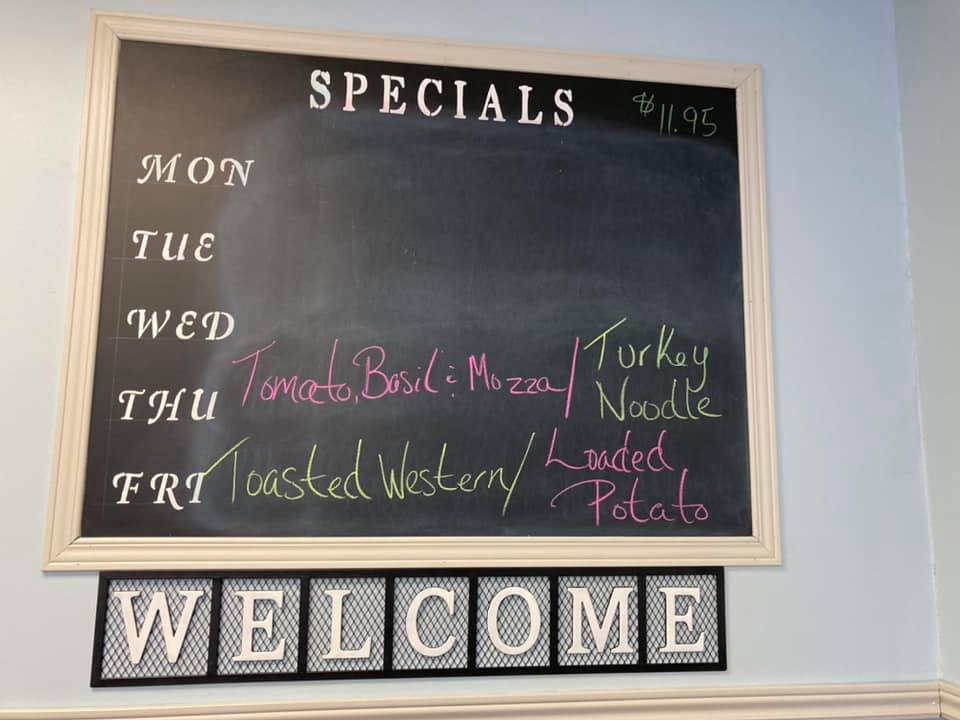 SPECIALS $11.95
MON
TUE
WED
THU Tomato, Basil & Mozza / Turkey Noodle
FRI Toasted Western / Loaded Potato
WELCOME